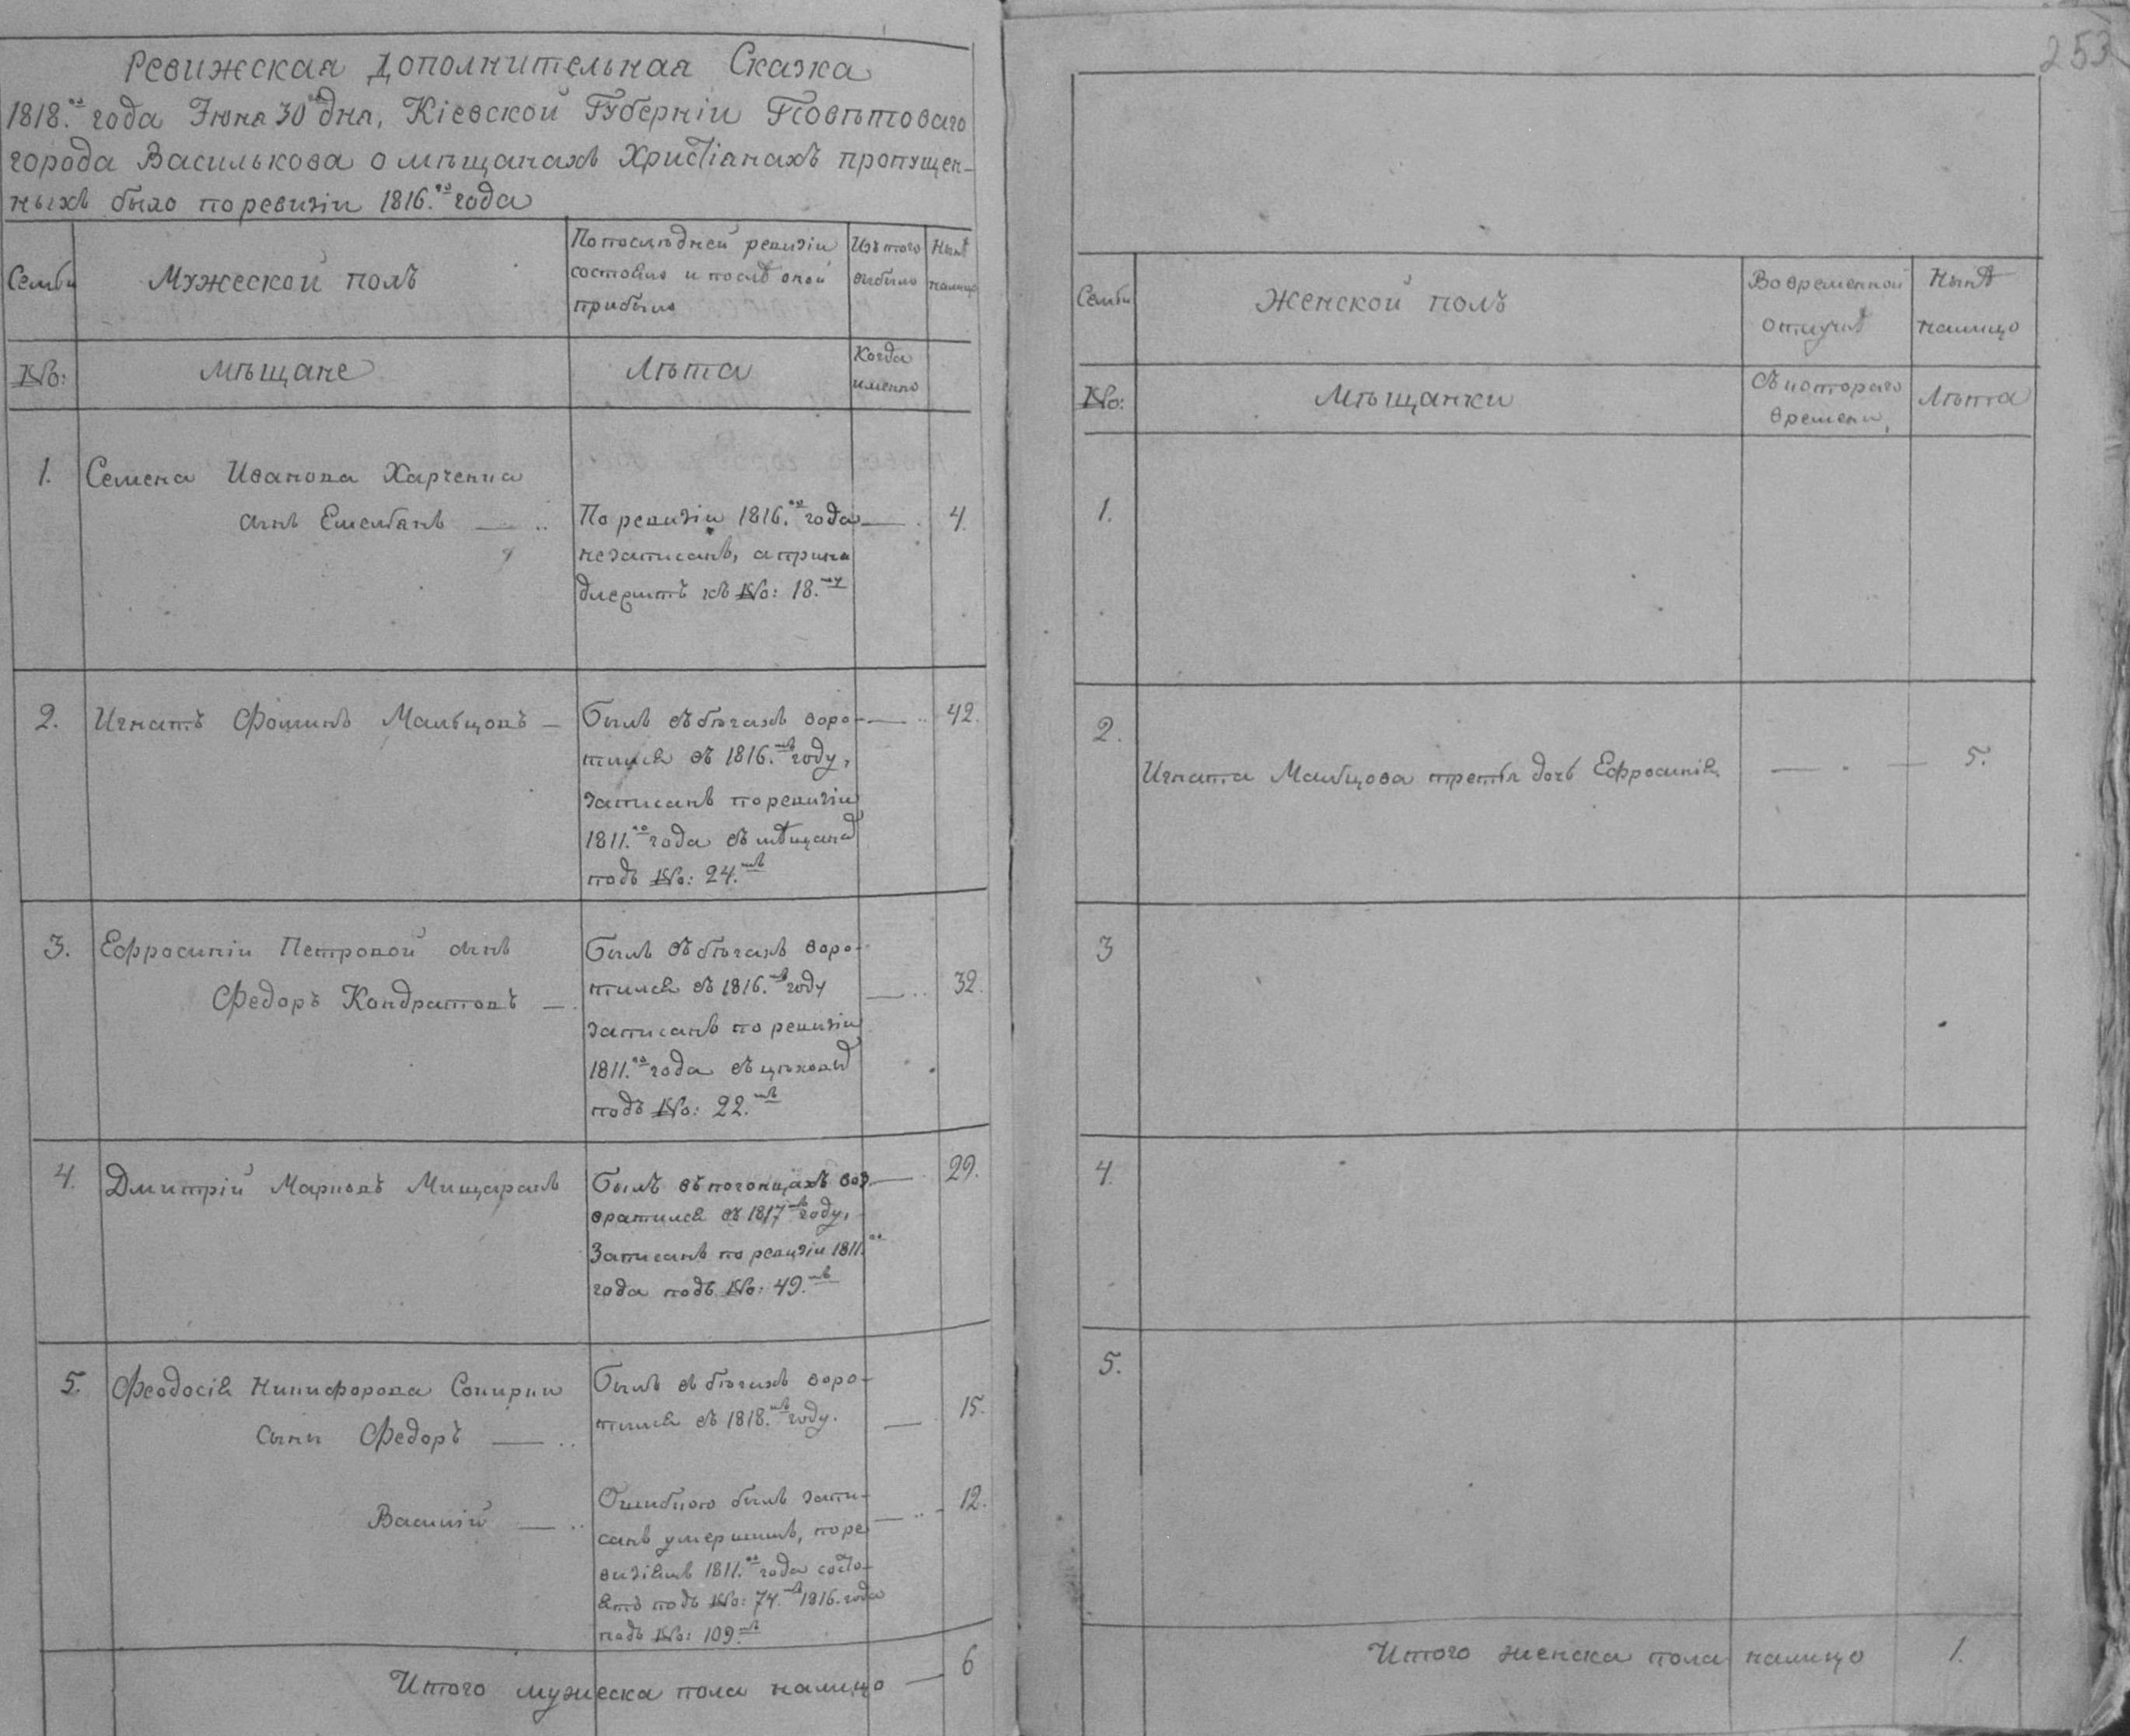 Ревижская Дополнительная Сказка
1818.го года Июня 30го дня, Кіевской Губерніи Повѣтоваго
города Василькова о мѣщанахъ Христіанахъ пропущен-
ныхъ было поревизіи 1816.го года
Семьи
Мужеской полъ
Попослѣдней ревизіи
состояло и послѣ оной
прибыло
Изътого
выбыло
Нынѣ
налицо
№:
мѣщане
Лѣта
Когда
именно
1.
Семена Иванова Харченка
сынъ Емельянъ
По ревизіи 1816.го года
незаписанъ, а прина
длежитъ къ №: 18.му
4.
2.
Игнатъ Фоминъ Мальцовъ
Былъ въ бѣгахъ воро-
тился въ 1816.мъ году,
записанъ по ревизіи
1811.го года въ мѣщанах
подъ №: 24.мъ
42.
3.
Ефросиніи Петровой сынъ
Федоръ Кондратовъ
Былъ въ бѣгахъ воро-
тился въ 1816.мъ году
записанъ по ревизіи
1811.го года въ цѣховых
подъ №: 22.мъ
32.
4.
Дмитрій Марковъ Мищеракъ
Былъ въ погонщахъ воз
вратился въ 1817мъ году,
Записанъ по ревизіи 1811.го
года подъ №: 49.мъ
29.
5.
Феодосія Никифорова Сокирки
сыны Федоръ
Былъ въ бѣгахъ воро-
тился въ 1818.мъ году.
15.
Василій
Ошибкою былъ запи-
санъ умершимъ, поре
визіямъ 1811.го года состо-
ятъ подъ №: 74.мъ 1816. года
подъ №: 109.мъ
12.
Итого мужеска пола налицо
6
253
Семьи
Женской полъ
Вовременной
отлучкѣ
Нынѣ
налицо
№:
Мѣщанки
Съкотораго
времени,
Лѣта
1.
2.
Игната Мальцова третья дочь Ефросинія
5.
3
4.
5.
Итого женска пола налицо
1.